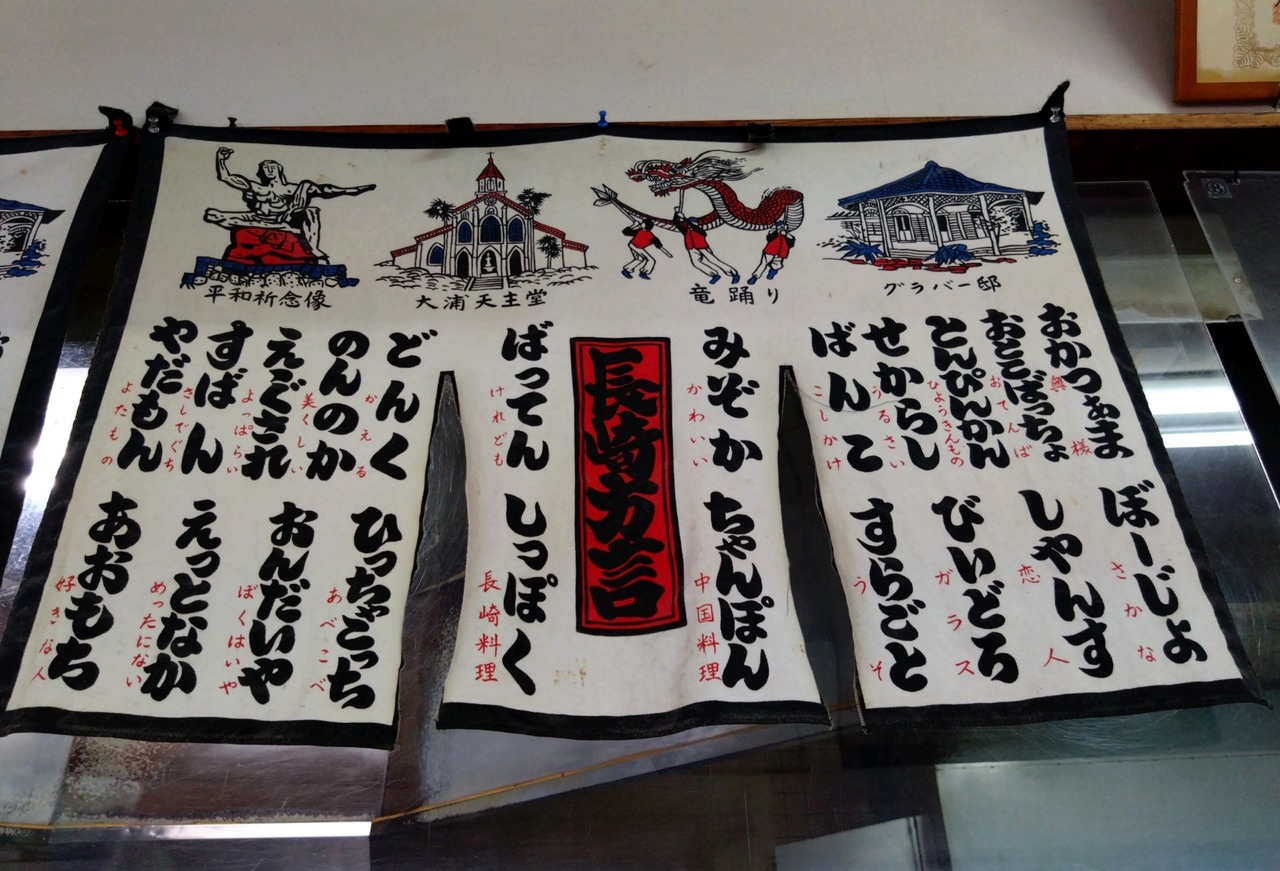 平和祈念像
大浦天主堂
竜踊り
グラバー邸
おかつぁま
奥様
おとこばっちょ
おてんば
とんぴんかん
ひょうきんもの
せからし
うるさい
ばんこ
こしかけ
ぼーじょ
さかな
しゃんす
恋人
びいどろ
ガラス
すらごと
うそ
みぞか
かわいい
ちゃんぽん
中国料理
長崎方言
ばってん
けれども
しっぽく
長崎料理
どんく
かえる
のんのか
美くしい
えぐされ
よっぱらい
すばん
さしでぐち
やだもん
よたもの
ひっちゃごっち
あべこべ
おんだいや
ぼくはいや
えっとなか
めったにない
あおもち
好きな人